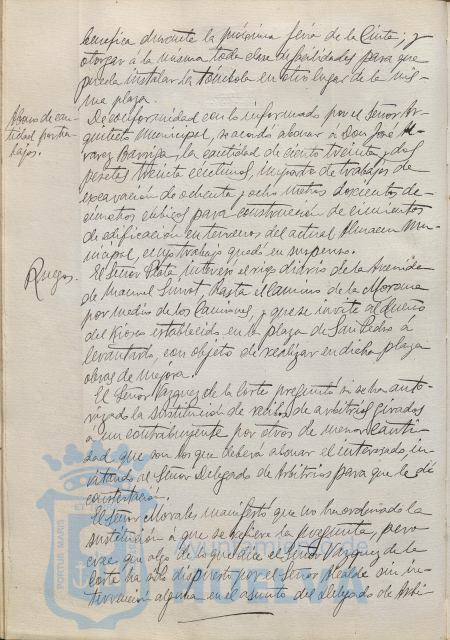 benéfica durante la próxima feria de la Cinta; y
otorgar á la misma toda clase de facilidades para que
pueda instalar la tómbola en otro lugar de la mis-
ma plaza.
Abono de can-
tidad por tra-
bajos.
De conformidad con lo informado por el Señor Ar-
quitecto Municipal, se acordó abonar á Don José Al-
varez Barriga, la cantidad de ciento treinta y dos
pesetas treinta céntimos, importe de trabajos de
excavación de ochenta y ocho metros doscientos de-
címetros cúbicos para construcción de cimientos
de edificación en terrenos del actual Almacén Mu-
nicipal, cuyo trabajo quedó en suspenso.
Ruegos.
El Señor Plata interesó el riego diario de la Avenida
de Manuel Siurot, hasta el camino de la Morana
por medio de los camiones, y que se invite al dueño
del Kiosco establecido en la plaza de San Pedro á
levantarlo, con objeto de realizar en dicha plaza
obras de mejora.
El Señor Vazquez de la Corte preguntó si se ha auto-
rizado la sustitución de recibos de arbitrios girados
á un contribuyente por otros de menor canti-
dad, que son los que deberá abonar el interesado, in-
vitando al Señor Delegado de Arbitrios para que le dé
contestación.
El Señor Morales manifestó que no ha ordenado la
sustitución á que se refiere la pregunta, pero
cree que algo de lo que dice el Señor Vazquez de la
Corte ha sido dispuesto por el Señor Alcalde sin in-
tervención alguna en el asunto del Delegado de Arbi-
PORTUS MARIS
Ayuntamiento de
HUELVA